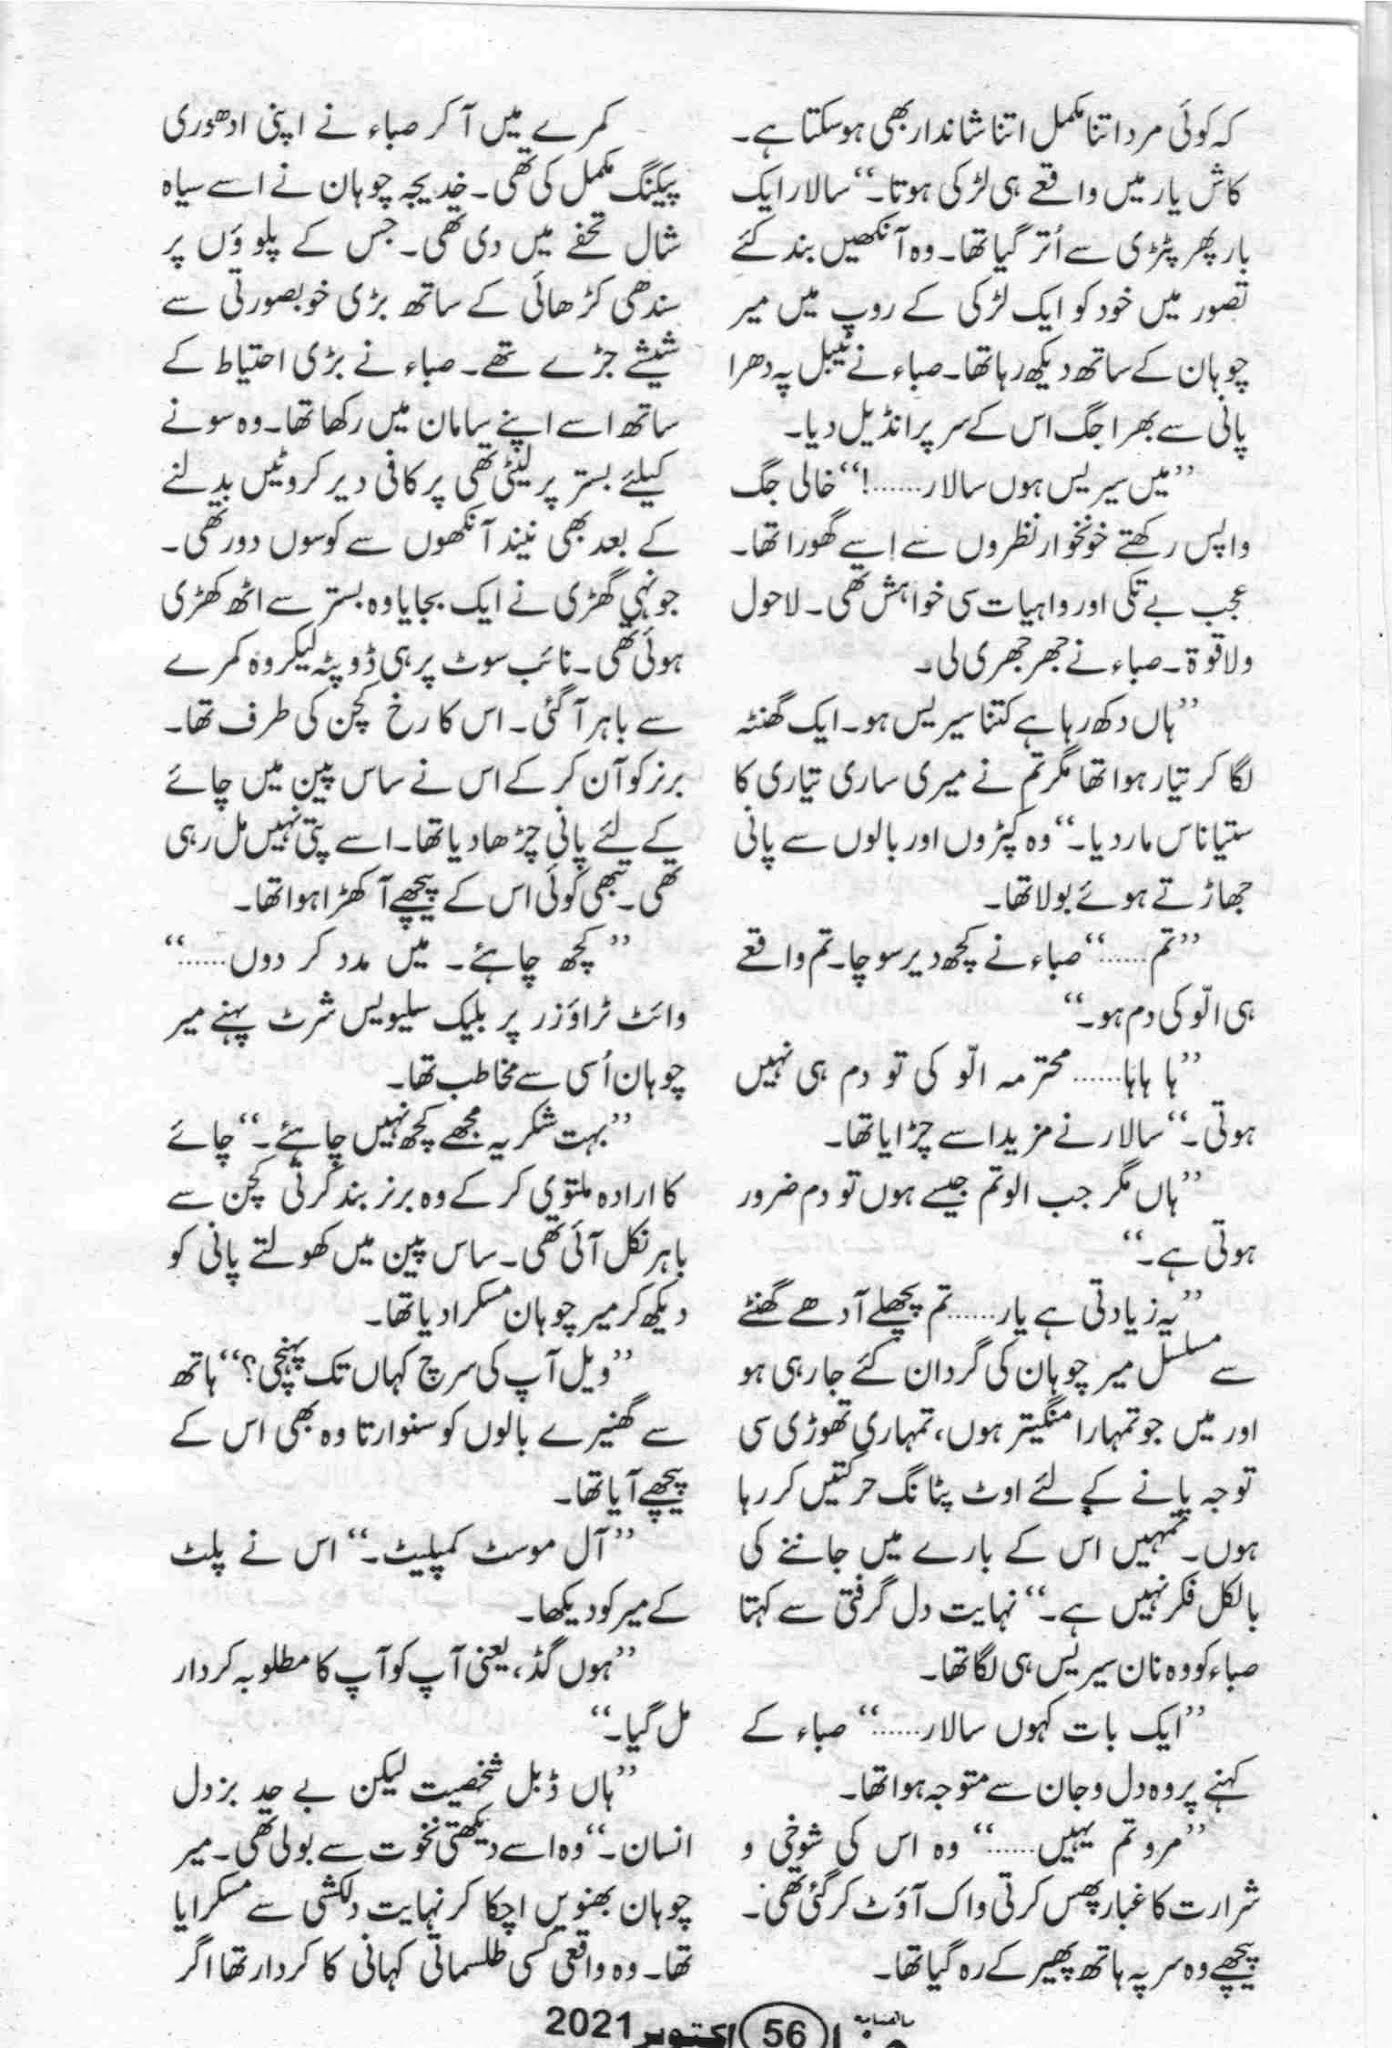 کہ کوئی مرد اتنا مکمل اتنا شاندار بھی ہو سکتا ہے۔
کاش یار میں واقعے ہی لڑکی ہوتا۔‘‘ سالار ایک
بار پھر پٹڑی سے اُتر گیا تھا۔ وہ آنکھیں بند کئے
تصور میں خود کو ایک لڑکی کے روپ میں میر
چوہان کے ساتھ دیکھ رہا تھا۔ صباء نے ٹیبل پہ دھرا
پانی سے بھرا جگ اس کے سر پر انڈیل دیا۔
’’میں سیریس ہوں سالار......!‘‘ خالی جگ
واپس رکھتے خونخوار نظروں سے اسے گھورا تھا۔
عجب بے تکی اور واہیات سی خواہش تھی۔ لاحول
ولا قوۃ۔ صباء نے جھرجھری لی۔
’’ہاں دکھ رہا ہے کتنا سیریس ہو۔ ایک گھنٹہ
لگا کر تیار ہوا تھا مگر تم نے میری ساری تیاری کا
ستیاناس مار دیا۔‘‘ وہ کپڑوں اور بالوں سے پانی
جھاڑتے ہوئے بولا تھا۔
’’تم......‘‘ صباء نے کچھ دیر سوچا۔ تم واقعے
ہی الّو کی دم ہو۔‘‘
’’ہا ہاہا...... محترمہ الّو کی تو دم ہی نہیں
ہوتی۔‘‘ سالار نے مزید اسے چڑایا تھا۔
’’ہاں مگر جب الو تم جیسے ہوں تو دم ضرور
ہوتی ہے۔‘‘
’’یہ زیادتی ہے یار...... تم پچھلے آدھے گھنٹے
سے مسلسل میر چوہان کی گردان کئے جا رہی ہو
اور میں جو تمہارا منگیتر ہوں، تمہاری تھوڑی سی
توجہ پانے کے لئے اوٹ پٹانگ حرکتیں کر رہا
ہوں۔ تمہیں اس کے بارے میں جاننے کی
بالکل فکر نہیں ہے۔‘‘ نہایت دل گرفتی سے کہتا
صباء کو وہ نان سیریس ہی لگا تھا۔
’’ایک بات کہوں سالار......‘‘ صباء کے
کہنے پر وہ دل و جان سے متوجہ ہوا تھا۔
’’مرو تم یہیں......‘‘ وہ اس کی شوخی و
شرارت کا غبار پھس کرتی واک آؤٹ کر گئی تھی۔
پیچھے وہ سر پہ ہاتھ پھیر کے رہ گیا تھا۔
کمرے میں آ کر صباء نے اپنی ادھوری
پیکنگ مکمل کی تھی۔ خدیجہ چوہان نے اسے سیاہ
شال تحفے میں دی تھی۔ جس کے پلوؤں پر
سندھی کڑھائی کے ساتھ بڑی خوبصورتی سے
شیشے جڑے تھے۔ صباء نے بڑی احتیاط کے
ساتھ اسے اپنے سامان میں رکھا تھا۔ وہ سونے
کیلئے بستر پر لیٹی تھی پر کافی دیر کروٹیں بدلنے
کے بعد بھی نیند آنکھوں سے کوسوں دور تھی۔
جونہی گھڑی نے ایک بجایا وہ بستر سے اٹھ کھڑی
ہوئی تھی۔ نائب سوٹ پر ہی ڈوپٹہ لیکر وہ کمرے
سے باہر آ گئی۔ اس کا رخ کچن کی طرف تھا۔
برنر کو آن کر کے اس نے ساس پین میں چائے
کے لئے پانی چڑھا دیا تھا۔ اسے پتی نہیں مل رہی
تھی۔ تبھی کوئی اس کے پیچھے آ کھڑا ہوا تھا۔
’’کچھ چاہئے۔ میں مدد کر دوں......‘‘
وائٹ ٹراؤزر پر بلیک سلیولیس شرٹ پہنے میر
چوہان اُسی سے مخاطب تھا۔
’’بہت شکریہ مجھے کچھ نہیں چاہئے۔‘‘ چائے
کا ارادہ ملتوی کر کے وہ برنر بند کرتی کچن سے
باہر نکل آئی تھی۔ ساس پین میں کھولتے پانی کو
دیکھ کر میر چوہان مسکرا دیا تھا۔
’’ویل آپ کی سرچ کہاں تک پہنچی؟‘‘ ہاتھ
سے گھنیرے بالوں کو سنوارتا وہ بھی اس کے
پیچھے آیا تھا۔
’’آل موسٹ کمپلیٹ۔‘‘ اس نے پلٹ
کے میر کو دیکھا۔
’’ہوں گڈ، یعنی آپ کو آپ کا مطلوبہ کردار
مل گیا۔‘‘
’’ہاں ڈبل شخصیت لیکن بے حد بزدل
انسان۔‘‘ وہ اسے دیکھتی نخوت سے بولی تھی۔ میر
چوہان بھنویں اچکا کر نہایت دلکشی سے مسکرایا
تھا۔ وہ واقعی کسی طلسماتی کہانی کا کردار تھا اگر
56 اکتوبر 2021